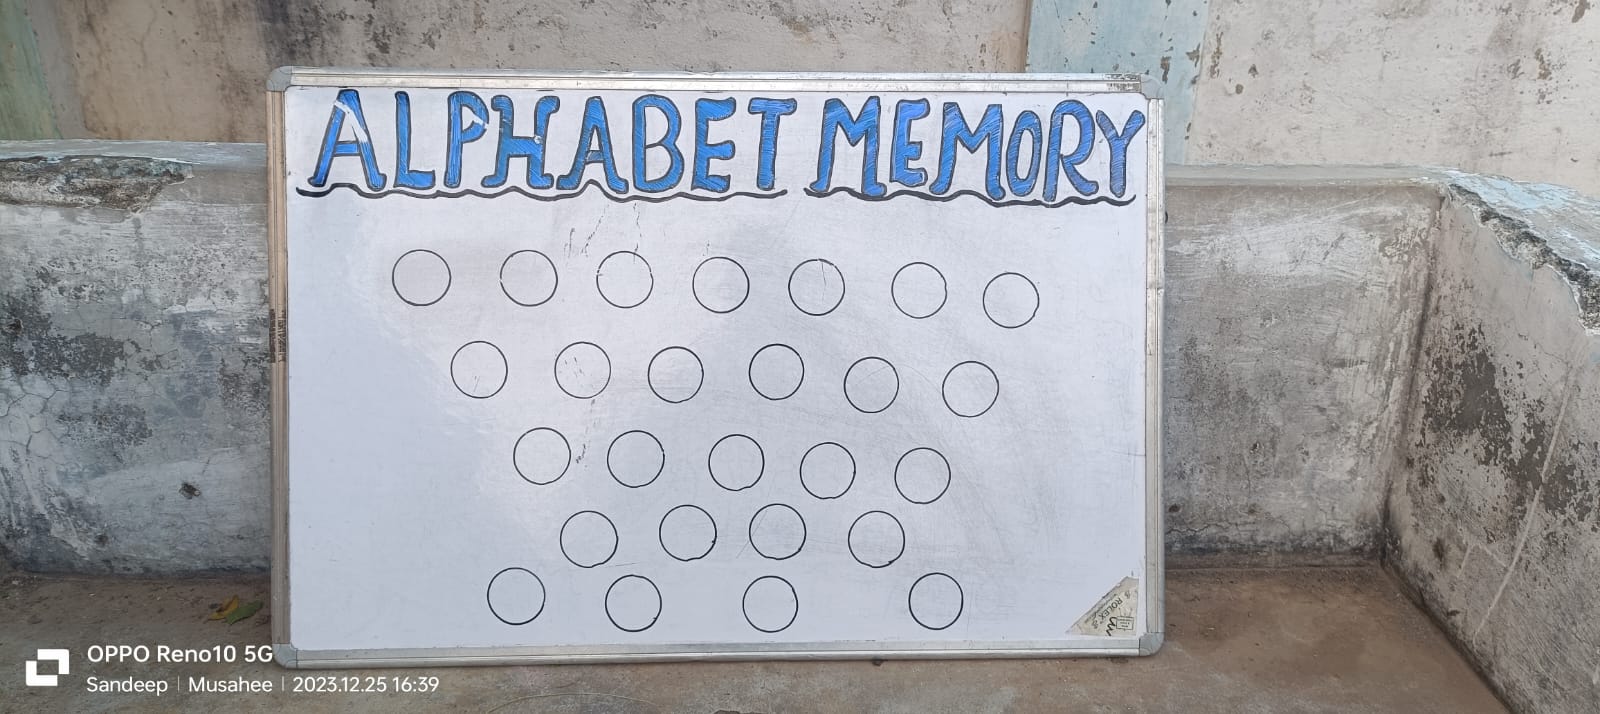 ALPHABET MEMORY
ROLEX
OPPO Reno10 5G
Sandeep | Musahee | 2023.12.25 16:39